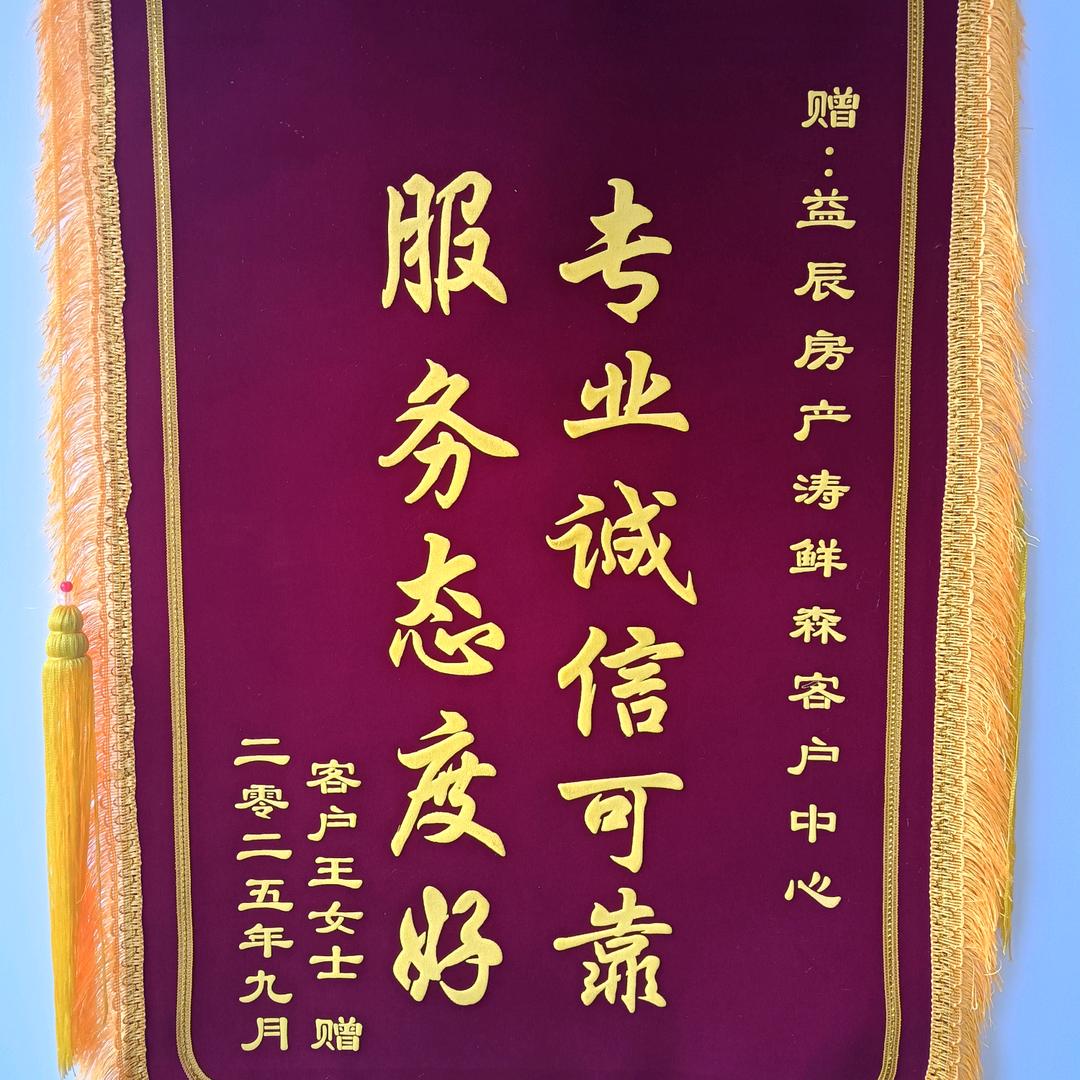 赠：益辰房产涛鲜森客户中心
专业诚信可靠
服务态度好
客户王女士 赠
二零二五年九月